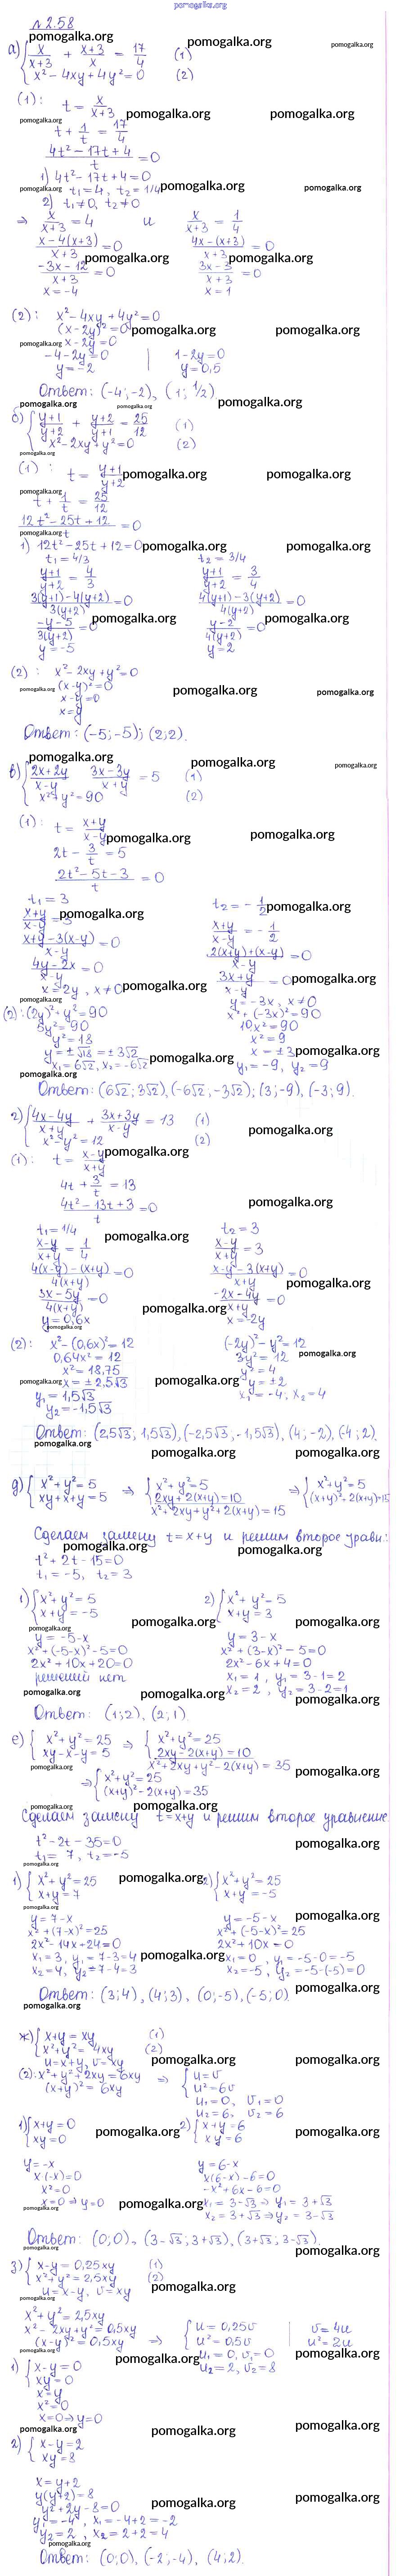 pomogalka.org
№2.58
а) { x/(x+3) + (x+3)/x = 17/4 (1)
x² - 4xy + 4y² = 0 (2)
(1): t = x/(x+3)
t + 1/t = 17/4
(4t² - 17t + 4)/t = 0
1) 4t² - 17t + 4 = 0
t₁ = 4, t₂ = 1/4
2) t₁ ≠ 0, t₂ ≠ 0
⇒ x/(x+3) = 4 и x/(x+3) = 1/4
(x - 4(x+3))/(x+3) = 0 (4x - (x+3))/(x+3) = 0
(-3x - 12)/(x+3) = 0 (3x - 3)/(x+3) = 0
x = -4 x = 1
(2): x² - 4xy + 4y² = 0
(x - 2y)² = 0
x - 2y = 0
-4 - 2y = 0 | 1 - 2y = 0
y = -2 y = 0,5
Ответ: (-4; -2), (1; 1/2)
б) { (y+1)/(y+2) + (y+2)/(y+1) = 25/12 (1)
x² - 2xy + y² = 0 (2)
(1): t = (y+1)/(y+2)
t + 1/t = 25/12
(12t² - 25t + 12)/t = 0
1) 12t² - 25t + 12 = 0
t₁ = 4/3 t₂ = 3/4
(y+1)/(y+2) = 4/3 (y+1)/(y+2) = 3/4
(3(y+1) - 4(y+2))/(3(y+2)) = 0 (4(y+1) - 3(y+2))/(4(y+2)) = 0
(-y - 5)/(3(y+2)) = 0 (y - 2)/(4(y+2)) = 0
y = -5 y = 2
(2): x² - 2xy + y² = 0
(x - y)² = 0
x - y = 0
x = y
Ответ: (-5; -5); (2; 2).
в) { (2x+2y)/(x-y) (3x-3y)/(x+y) = 5 (1)
x² + y² = 90 (2)
(1): t = (x+y)/(x-y)
2t - 3/t = 5
(2t² - 5t - 3)/t = 0
t₁ = 3 t₂ = -1/2
(x+y)/(x-y) = 3 (x+y)/(x-y) = -1/2
(x+y - 3(x-y))/(x-y) = 0 (2(x+y) + (x-y))/(x-y) = 0
(4y - 2x)/(x-y) = 0 (3x+y)/(x-y) = 0
x = 2y, x ≠ 0 y = -3x, x ≠ 0
(2): (2y)² + y² = 90 x² + (-3x)² = 90
5y² = 90 10x² = 90
y² = 18 x² = 9
y = ±√18 = ±3√2 x = ±3
x₁ = 6√2, x₂ = -6√2 y₁ = -9, y₂ = 9
Ответ: (6√2; 3√2), (-6√2; -3√2); (3; -9), (-3; 9).
г) { (4x-4y)/(x+y) + (3x+3y)/(x-y) = 13 (1)
x² - y² = 12 (2)
(1): t = (x-y)/(x+y)
4t + 3/t = 13
(4t² - 13t + 3)/t = 0
t₁ = 1/4 t₂ = 3
(x-y)/(x+y) = 1/4 (x-y)/(x+y) = 3
(4(x-y) - (x+y))/(4(x+y)) = 0 (x-y - 3(x+y))/(x+y) = 0
(3x - 5y)/(4(x+y)) = 0 (-2x - 4y)/(x+y) = 0
y = 0,6x x = -2y
(2): x² - (0,6x)² = 12 (-2y)² - y² = 12
0,64x² = 12 3y² = 12
x² = 18,75 y² = 4
x = ±2,5√3 y = ±2
y₁ = 1,5√3 x₁ = -4, x₂ = 4
y₂ = -1,5√3
Ответ: (2,5√3; 1,5√3), (-2,5√3; -1,5√3), (4; -2), (-4; 2).
д) { x² + y² = 5 ⇒ { x² + y² = 5 ⇒ { x² + y² = 5
xy + x + y = 5 2xy + 2(x+y) = 10 (x+y)² + 2(x+y) = 15
x² + 2xy + y² + 2(x+y) = 15
Сделаем замену t = x+y и решим второе уравн.:
t² + 2t - 15 = 0
t₁ = -5, t₂ = 3
1) { x² + y² = 5 2) { x² + y² = 5
x + y = -5 x + y = 3
y = -5 - x y = 3 - x
x² + (-5-x)² - 5 = 0 x² + (3-x)² - 5 = 0
2x² + 10x + 20 = 0 2x² - 6x + 4 = 0
решений нет x₁ = 1, y₁ = 3 - 1 = 2
x₂ = 2, y₂ = 3 - 2 = 1
Ответ: (1; 2), (2; 1)
е) { x² + y² = 25 ⇒ { x² + y² = 25
xy - x - y = 5 2xy - 2(x+y) = 10
x² + 2xy + y² - 2(x+y) = 35
⇒ { x² + y² = 25
(x+y)² - 2(x+y) = 35
Сделаем замену t = x+y и решим второе уравнение
t² - 2t - 35 = 0
t₁ = 7, t₂ = -5
1) { x² + y² = 25 2) { x² + y² = 25
x + y = 7 x + y = -5
y = 7 - x y = -5 - x
x² + (7-x)² = 25 x² + (-5-x)² = 25
2x² - 14x + 24 = 0 2x² + 10x = 0
x₁ = 3, y₁ = 7 - 3 = 4 x₁ = 0, y₁ = -5 - 0 = -5
x₂ = 4, y₂ = 7 - 4 = 3 x₂ = -5, y₂ = -5 - (-5) = 0
Ответ: (3; 4), (4; 3), (0; -5), (-5; 0).
ж) { x + y = xy (1)
x² + y² = 4xy (2)
u = x + y, v = xy
(2): x² + y² + 2xy = 6xy ⇒ { u = v
(x+y)² = 6xy u² = 6v
u₁ = 0, v₁ = 0
u₂ = 6, v₂ = 6
1) { x + y = 0 2) { x + y = 6
xy = 0 xy = 6
y = -x y = 6 - x
x·(-x) = 0 x(6-x) - 6 = 0
x² = 0 -x² + 6x - 6 = 0
x = 0 ⇒ y = 0 x₁ = 3 - √3 ⇒ y₁ = 3 + √3
x₂ = 3 + √3 ⇒ y₂ = 3 - √3
Ответ: (0; 0), (3-√3; 3+√3), (3+√3; 3-√3).
з) { x - y = 0,25xy (1)
x² + y² = 2,5xy (2)
u = x - y, v = xy
x² + y² = 2,5xy
x² - 2xy + y² = 0,5xy ⇒ { u = 0,25v | v = 4u
(x-y)² = 0,5xy u² = 0,5v | u² = 2u
u₁ = 0, v₁ = 0
u₂ = 2, v₂ = 8
1) { x - y = 0
xy = 0
x = y
x² = 0
x = 0 ⇒ y = 0
2) { x - y = 2
xy = 8
x = y + 2
y(y+2) = 8
y² + 2y - 8 = 0
y₁ = -4, x₁ = -4 + 2 = -2
y₂ = 2, x₂ = 2 + 2 = 4
Ответ: (0; 0), (-2; -4), (4; 2).